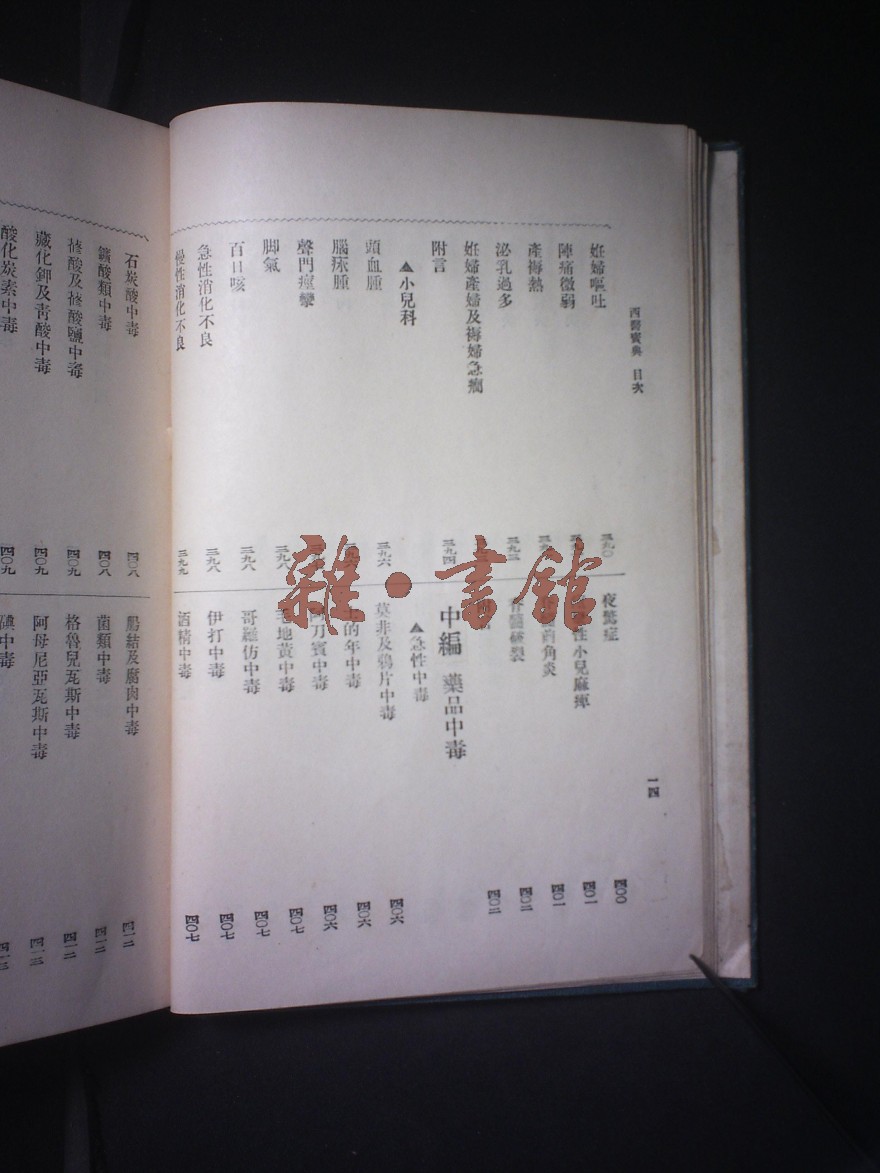 西醫寶典 目次
一四
姙婦嘔吐 三九〇
陣痛微弱
產褥熱
泌乳過多
姙婦產婦及褥婦急癇
附言 三九四
▲小兒科
頭血腫 三九六
腦牀腫
聲門痙攣
脚氣 三九八
百日咳 三九八
急性消化不良 三九八
慢性消化不良 三九九
夜驚症 四〇〇
性小兒麻痺 四〇一
角炎 四〇一
破裂 四〇二
四〇二
中編 藥品中毒
▲急性中毒
莫非及鴉片中毒 四〇六
的年中毒 四〇六
刀賓中毒 四〇六
毛地黃中毒 四〇七
哥羅仿中毒 四〇七
伊打中毒 四〇七
酒精中毒 四〇七
石炭酸中毒 四〇八
鑛酸類中毒 四〇八
蓚酸及蓚酸鹽中毒 四〇九
藏化鉀及靑酸中毒 四〇九
酸化炭素中毒 四〇九
腸結及腐肉中毒 四一二
菌類中毒 四一二
格魯兒瓦斯中毒 四一二
阿母尼亞瓦斯中毒 四一三
碘中毒 四一三
雜·書館